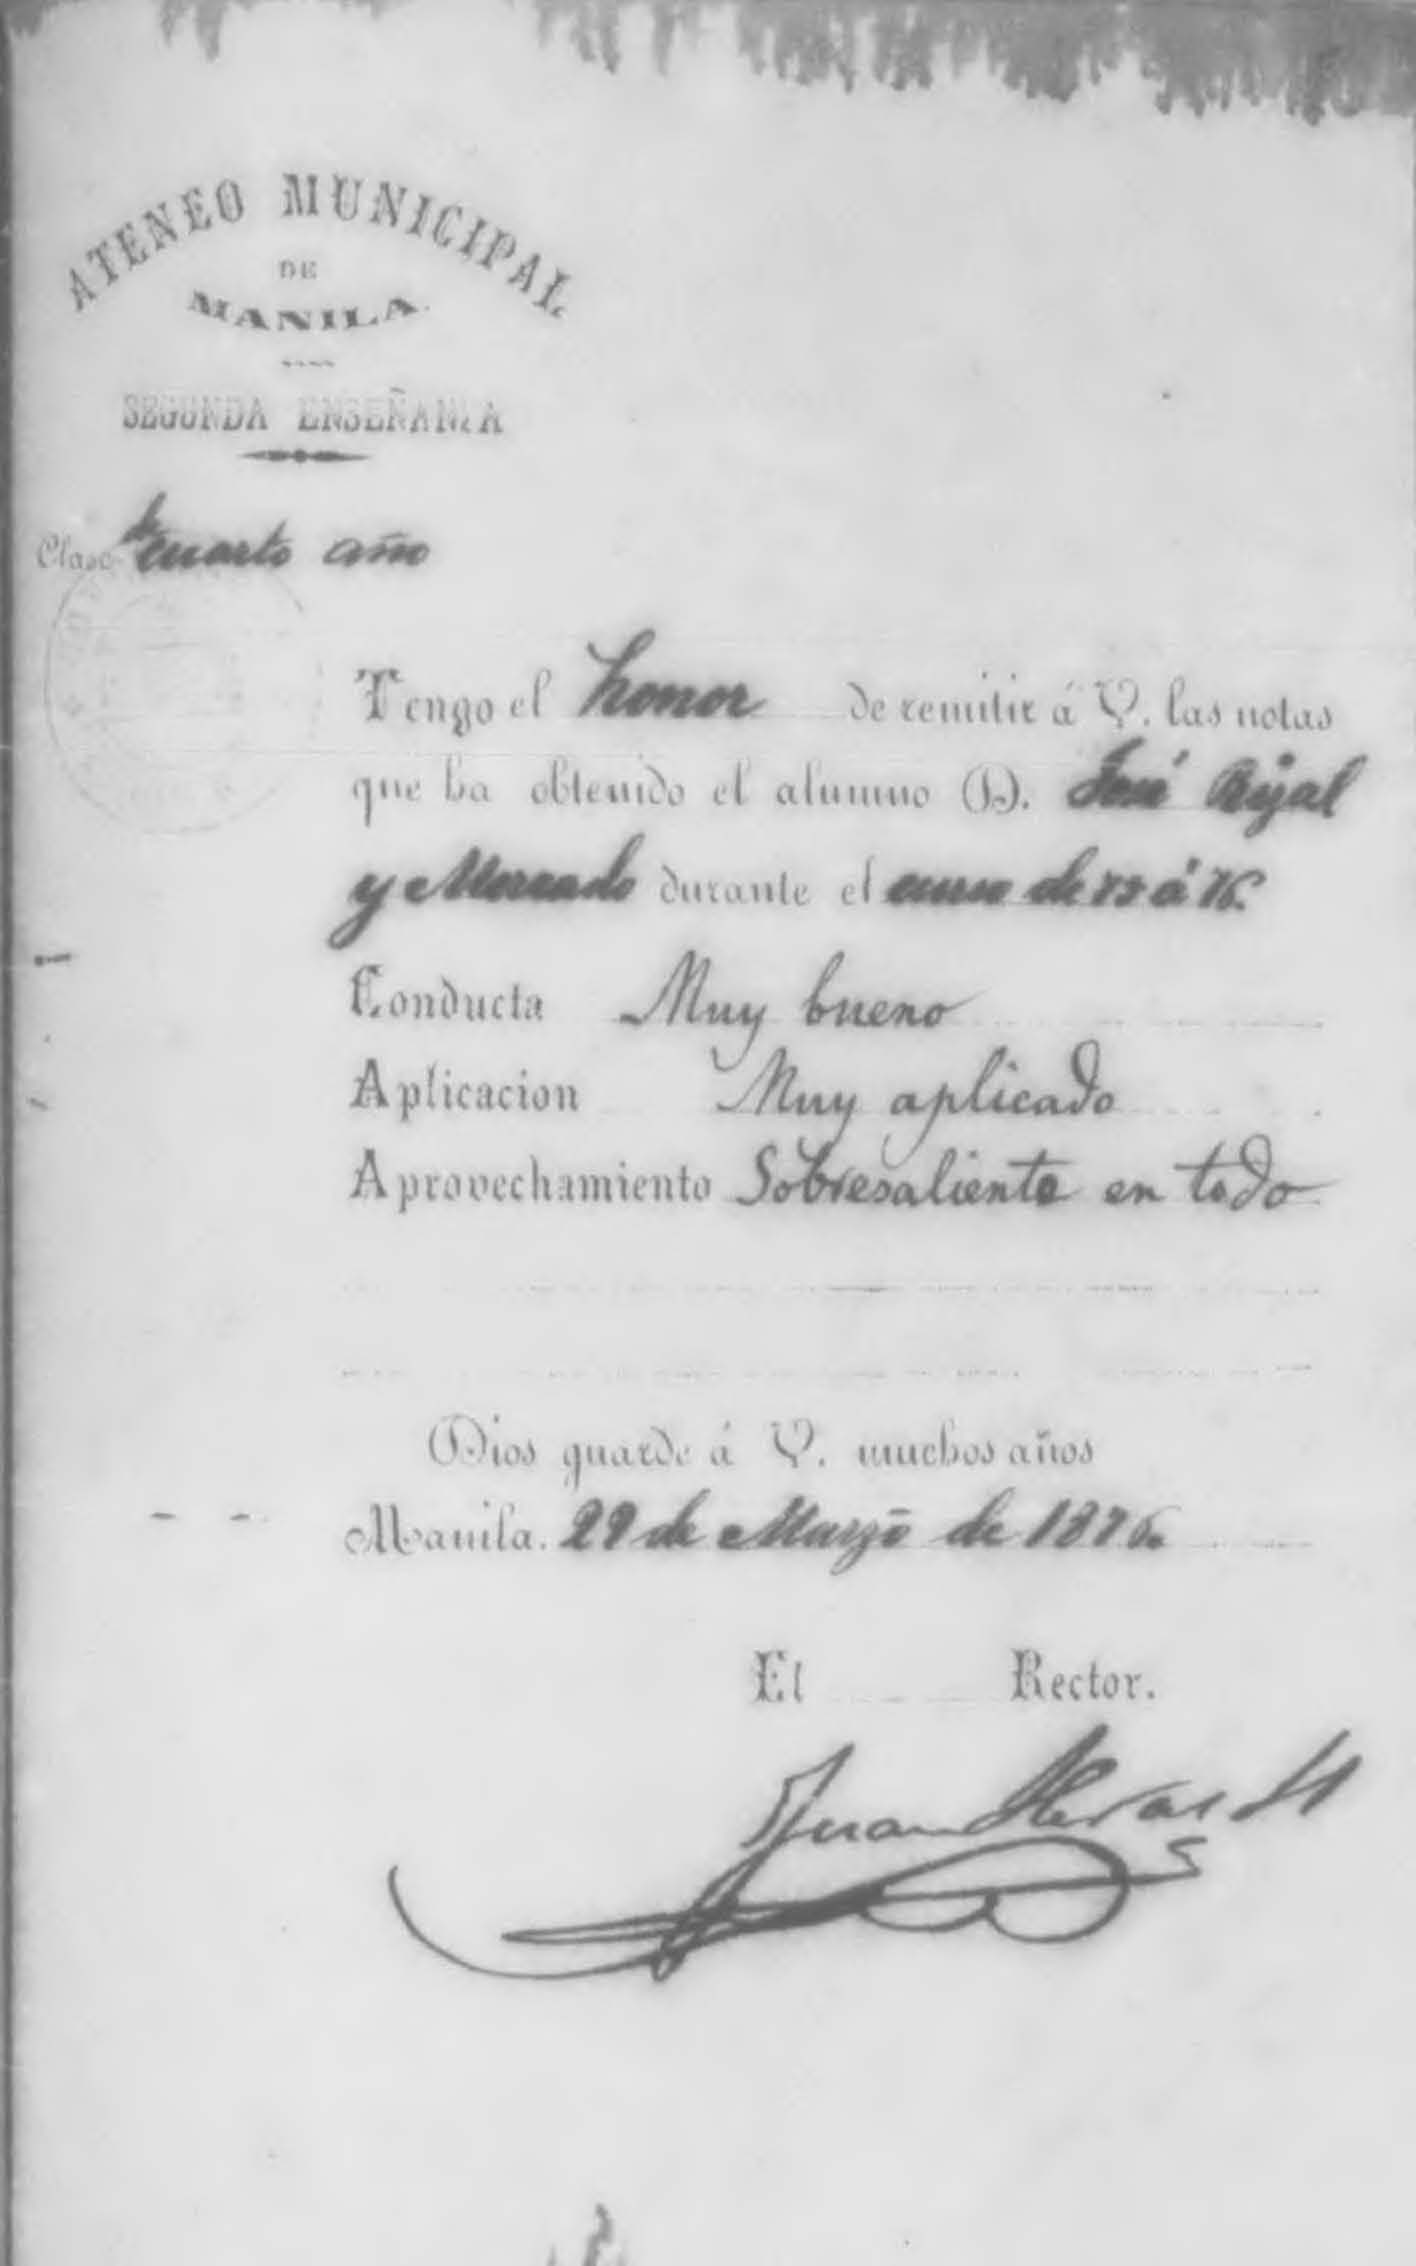 ATENEO MUNICIPAL
DE
MANILA.
SEGUNDA ENSEÑANZA
Clase de cuarto año
Tengo el honor de remitir á V. las notas
que ha obtenido el alumno D. José Rizal
y Mercado durante el curso de 75 á 76.
Conducta Muy bueno
Aplicacion Muy aplicado
Aprovechamiento Sobresaliente en todo
Dios guarde á V. muchos años
Manila. 22 de Marzo de 1876.
El Rector.
Juan